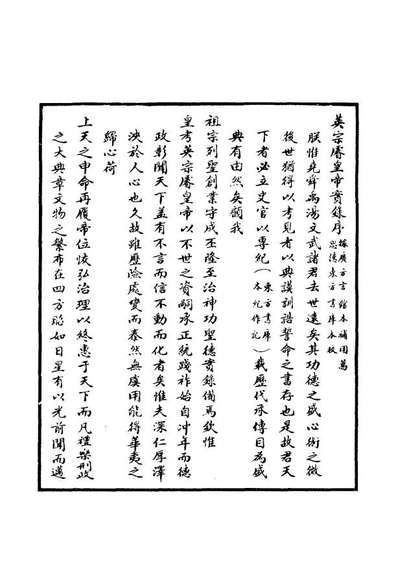 英宗睿皇帝實錄序 據廣方言館本補用萬
忠傳東方書庫本校
朕惟堯舜禹湯文武諸君去世遠矣其功德之盛心術之微
後世猶得以考見者以典謨訓誥誓命之書存也是故君天
下者必立史官以專紀(東方書庫本紀作記)載歷代承傳目為盛
典有由然矣顧我
祖宗列聖創業守成丕隆至治神功聖德實錄備焉欽惟
皇考英宗睿皇帝以不世之資嗣承正統踐祚始自沖年而德
政彰聞天下蓋有不言而信不動而化者矣惟夫深仁厚澤
浹於人心也久故雖歷險處變而泰然無虞用能得華夷之
歸心荷
上天之申命再履帝位恢弘治理以終惠于天下而凡禮樂刑政
之大典章文物之繁布在四方昭如日星有以光前聞而邁